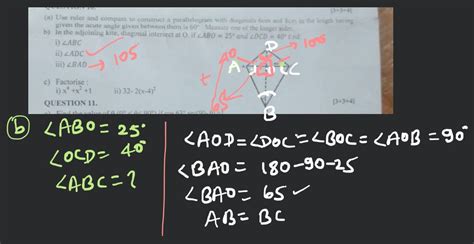 (a) Use ruler and compass to construct a parallelogram with diagonals 6cm and 8cm in the length having
given the acute angle given between them is 60°. Measure one of the longer sides.
b) In the adjoining kite, diagonal intersect at O, if ∠ABO = 25° and ∠OCD = 40° find
i) ∠ABC
ii) ∠ADC
iii) ∠BAD → 105
c) Factorise : [3+3+4]
i) x⁴ + x² + 1 ii) 32- 2(x-4)²
QUESTION 11.
40 D → 100
A C
+
65
B
(b) ∠ABO = 25°
∠OCD = 40°
∠ABC = ?
∠AOD = ∠DOC = ∠BOC = ∠AOB = 90°
∠BAO = 180-90-25
∠BAO = 65 ✓
AB = BC